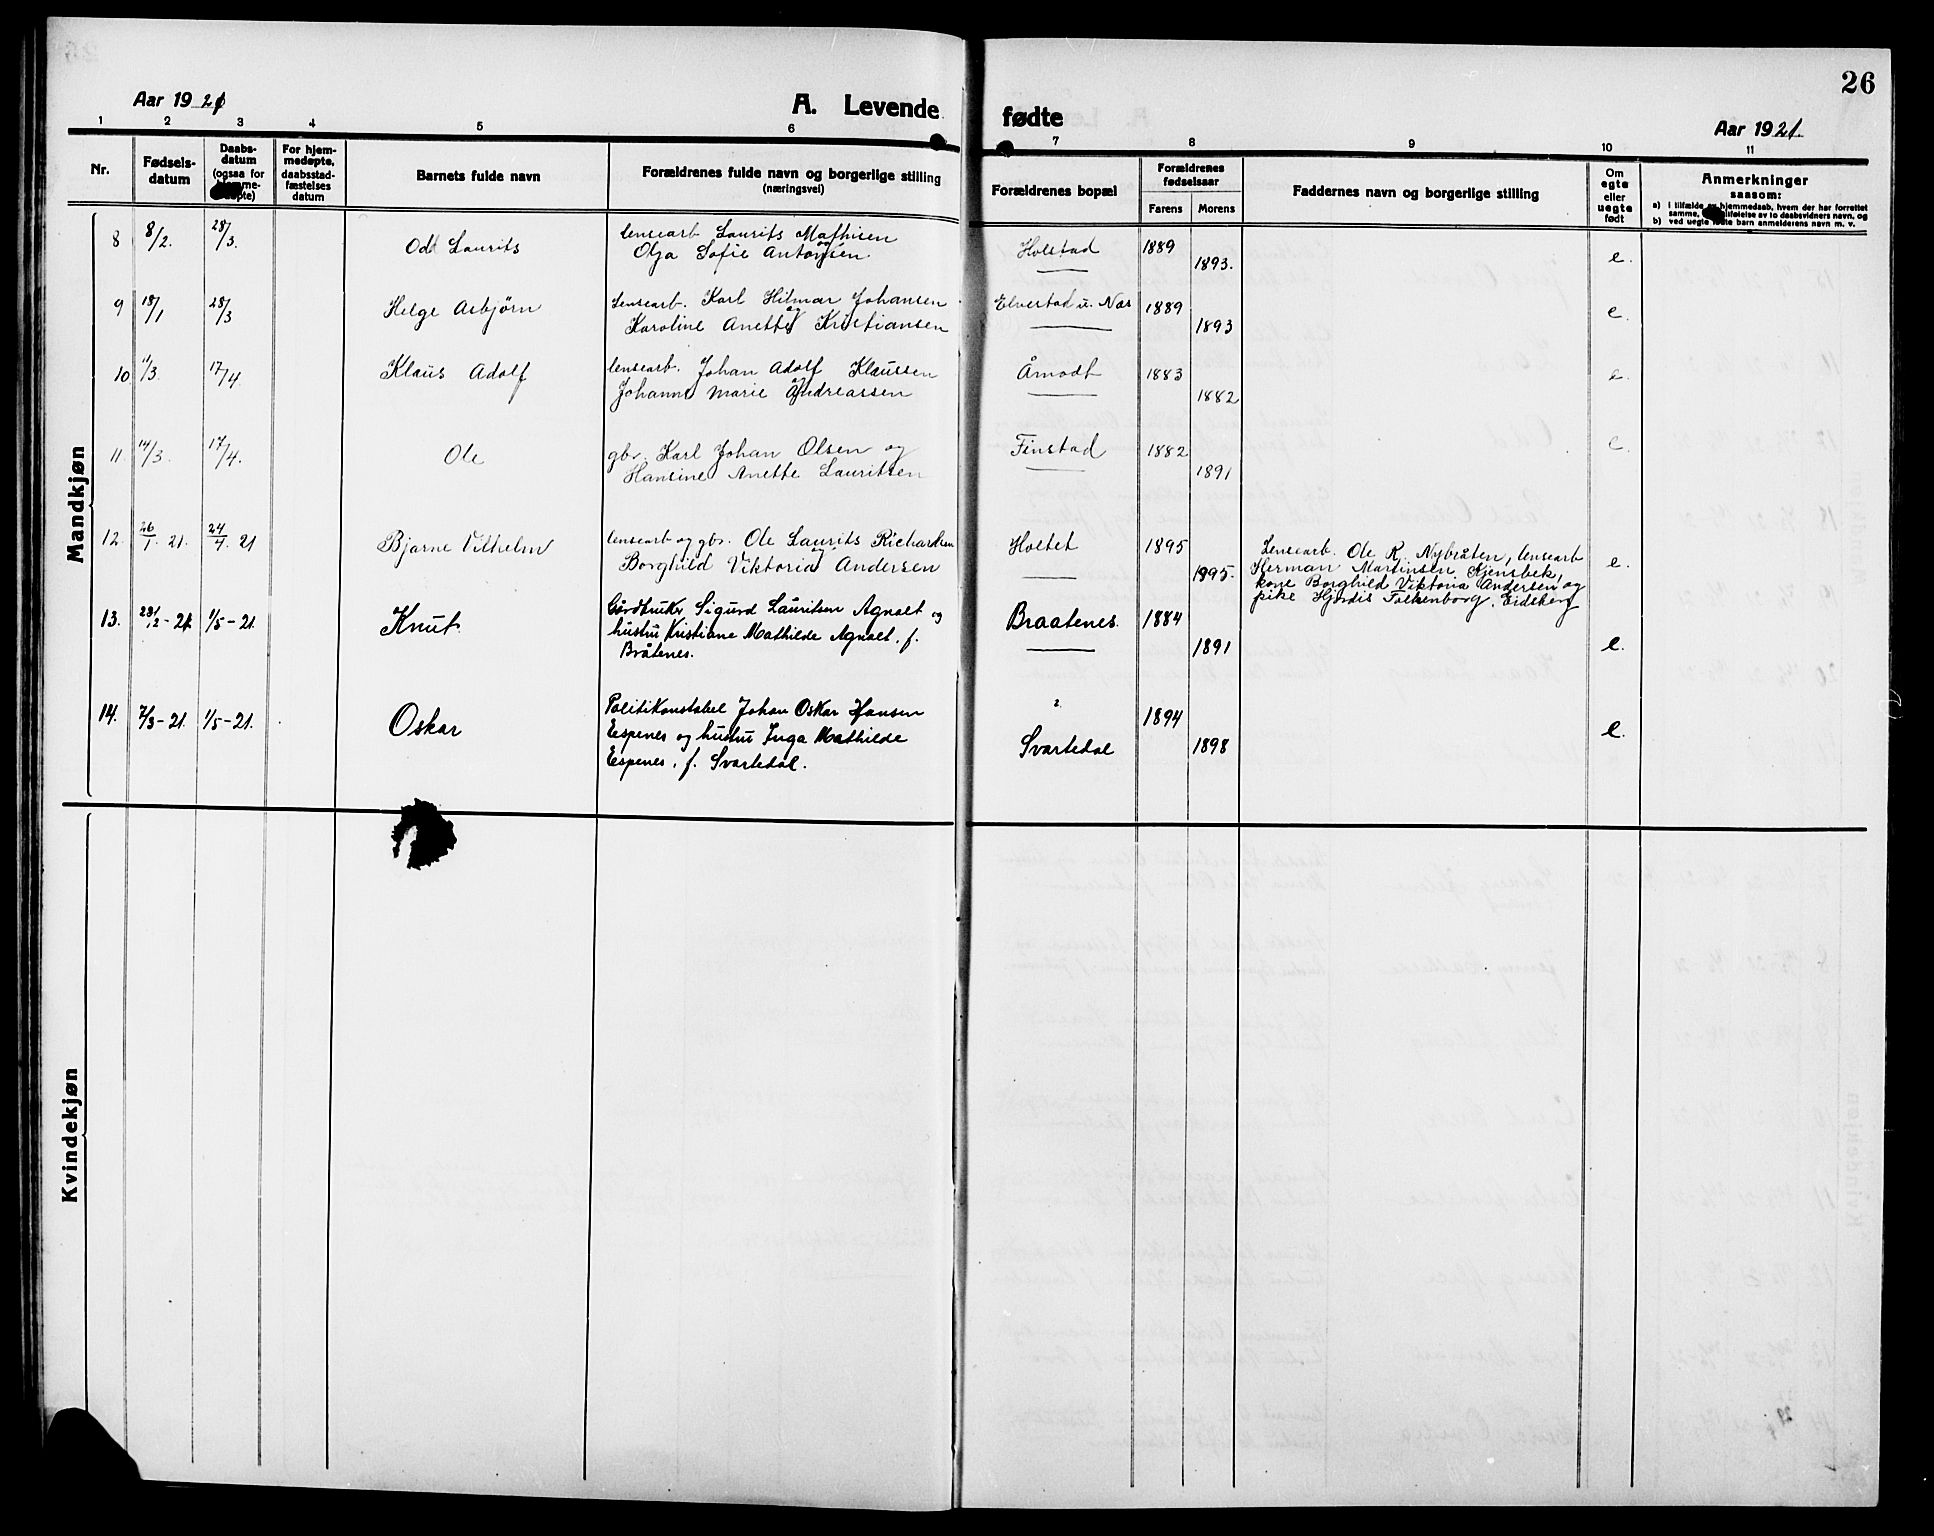 26
Aar 1921
A. Levende
fødte
Aar 1921.
1 2 3 4 5 6 7 8 9 10 11
Nr.
Fødsels-
datum
Daabs-
datum
(ogsaa for
For hjem-
medøpte,
daabsstad-
fæstelses
datum
Barnets fulde navn
Forældrenes fulde navn og borgerlige stilling
(næringsvei)
Forældrenes bopæl
Forældrenes
fødselsaar
Farens Morens
Faddernes navn og borgerlige stilling
Om
egte
eller
uegte
født
Anmerkninger
saasom:
a) I tilfælde av hjemmedaab, hvem der har forrettet
samme, av to daabsvidners navn, og
b) ved uegte fødte barn anmelderens navn m. v.
Mandkjøn
8 8/2. 28/3. Odd Laurits lensearb Laurits Mathisen og Holstad 1889 e.
Olga Sofie Antonsen. 1893.
9 18/1 28/3 Helge Asbjørn lensearb. Karl Hilmar Johansen og Elvestad u. Næs 1889 e.
Karoline Anette Kristiansen 1893
10 11/3. 17/4 Klaus Adolf lensearb. Johan Adolf Klaussen og Åmodt 1883 e.
Johanne Marie Andreassen 1882
11. 14/3. 17/4. Ole gbr. Karl Johan Olsen og Finstad 1882 e.
Hansine Anette Lauritsen 1891
12. 26/1. 21. 24/4. 21 Bjarne Vilhelm lensearb og gbr. Ole Laurits Richardsen og Holtet 1895 e.
Borghild Viktoria Andersen 1895.
Lensearb. Ole R. Nybråten, lensearb
Herman Martinsen Kjensbek,
kone Borghild Viktoria Andersen og
pike Hjørdis Falkenborg, Eidsberg
13. 23/2 - 21. 1/5 - 21. Knut. Gårdbruker Sigurd Lauritsen Agnalt og Braatenes. 1884
hustru Kristiane Mathilde Agnalt, f. 1891 e.
Bråtenes.
14. 7/3 - 21. 1/5 - 21. Oskar Politikonstabel Johan Oskar Hansen 1894
Espenes og hustru Inga Mathilde Svartedal 1898 e.
Espenes, f. Svartedal.
Kvindekjøn